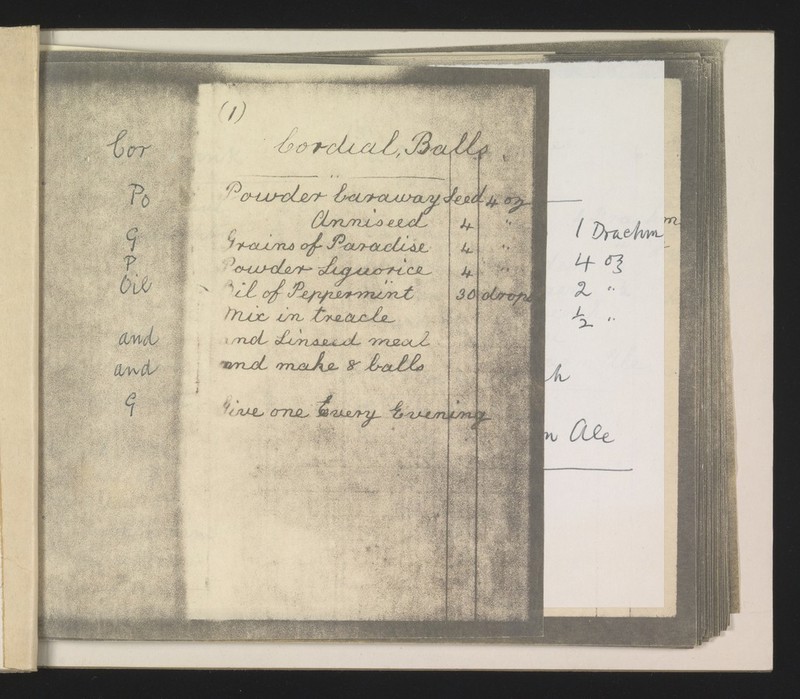 (1)
Cor Cordial, Balls.
Po Powder Caraway Seed 4 oz
Anniseed 4 "
G Grains of Paradise 4 "
P Powder Liquorice 4 "
Oil Oil of Peppermint 30 drops
Mix in treacle
and and Linseed meal
and and make 8 balls
G Give one Every Evening
1 Drachm
m
4 oz
2 "
½ "
h
n Ale